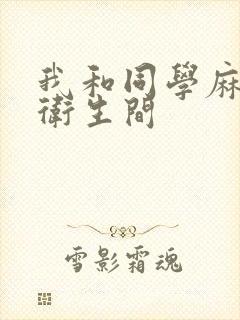 我和同學麻
衛生間
雪影霜魂